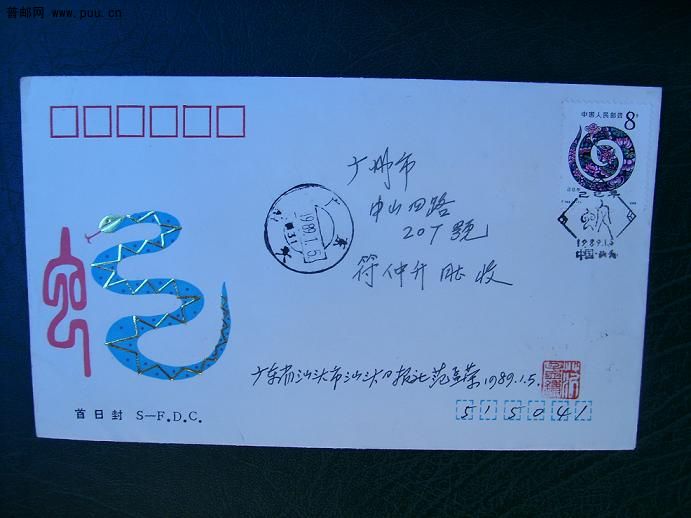 普邮网 www.puu.cn
中国人民邮政 8分
己巳年
1989.1.5
中国·汕头
广州市
中山四路
207號
符仲升 收
广东
1989.1.6
广东省汕头市汕头日报社范 荣1989.1.5.
515041
首日封 S—F.D.C.